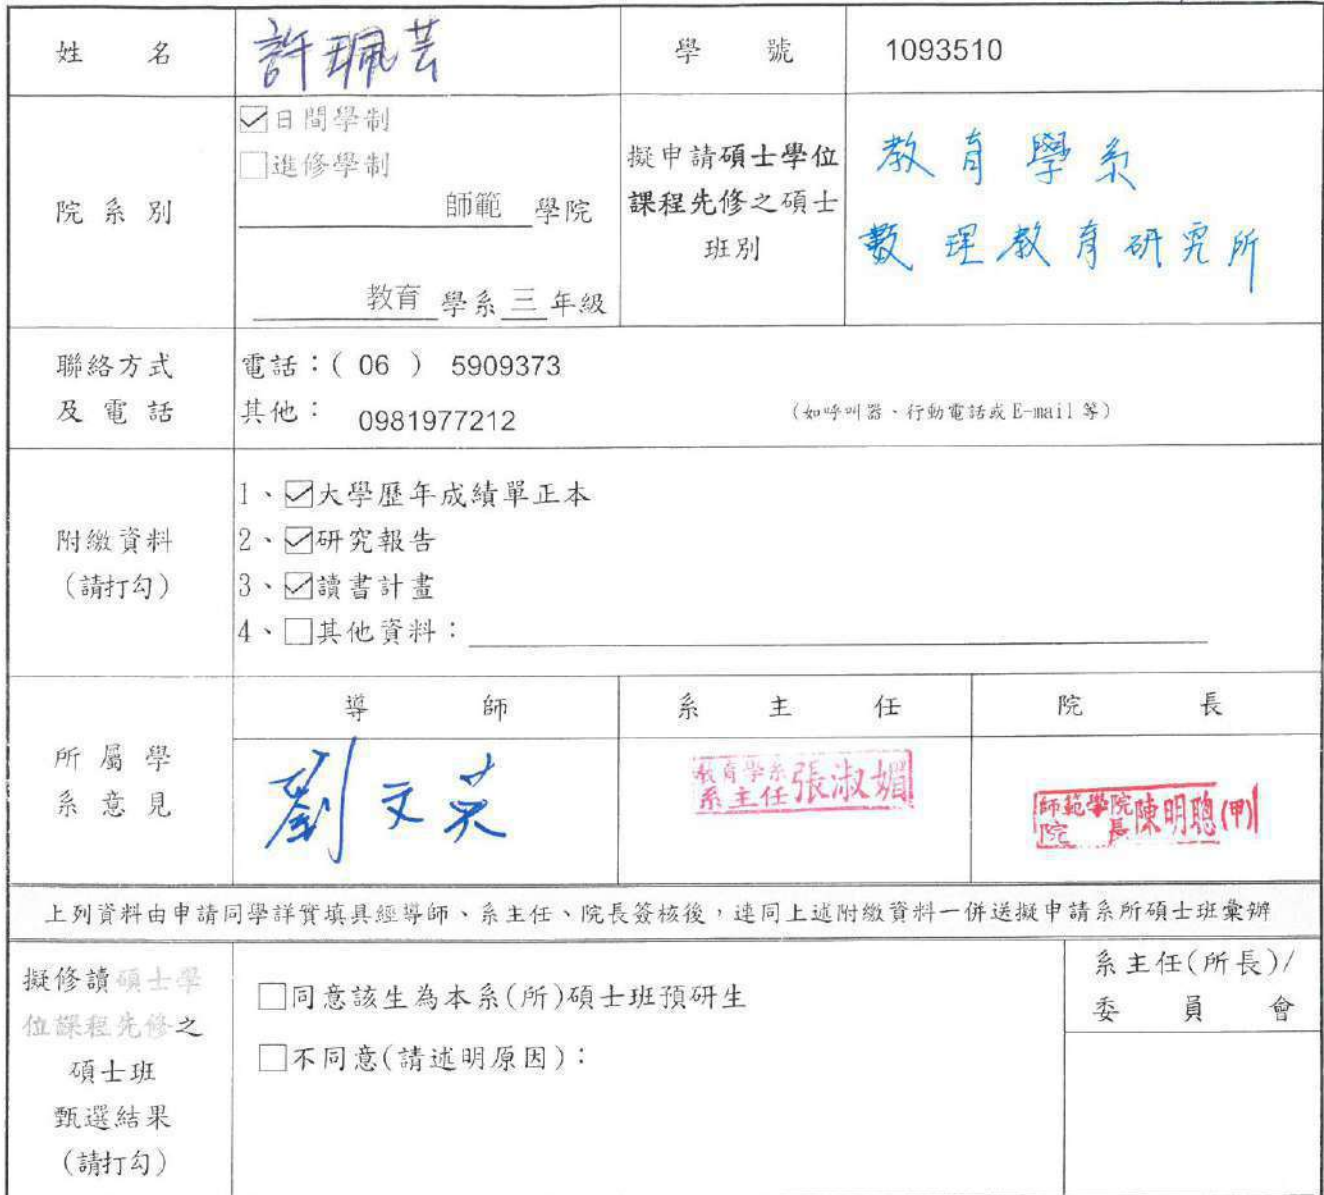 姓 名 許珮芸 學 號 1093510
☑日間學制
□進修學制
院系別 師範 學院
教育 學系 三 年級
擬申請碩士學位
課程先修之碩士
班別
教育學系
數理教育研究所
聯絡方式
及電話
電話：( 06 ) 5909373
其他： 0981977212 (如呼叫器、行動電話或E-mail等)
附繳資料
(請打勾)
1、☑大學歷年成績單正本
2、☑研究報告
3、☑讀書計畫
4、□其他資料：
所屬學
系意見
導 師 系 主 任 院 長
劉文英
教育學系
系主任 張淑媚
師範學院
院長 陳明聰(甲)
上列資料由申請同學詳實填具經導師、系主任、院長簽核後，連同上述附繳資料一併送擬申請系所碩士班彙辦
擬修讀碩士學
位課程先修之
碩士班
甄選結果
(請打勾)
□同意該生為本系(所)碩士班預研生
□不同意(請述明原因)：
系主任(所長)/
委員會